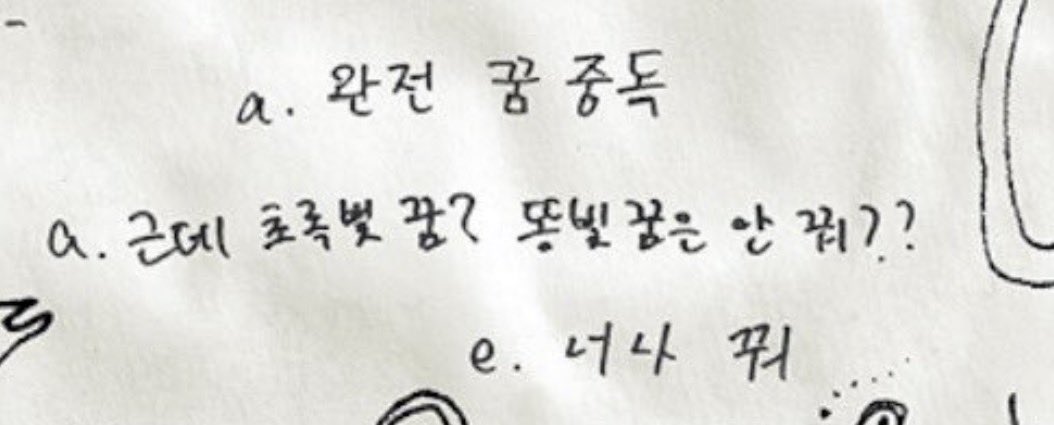 a. 완전 꿈 중독
a. 근데 초록빛 꿈? 똥빛 꿈은 안 꿔??
e. 너나 꿔